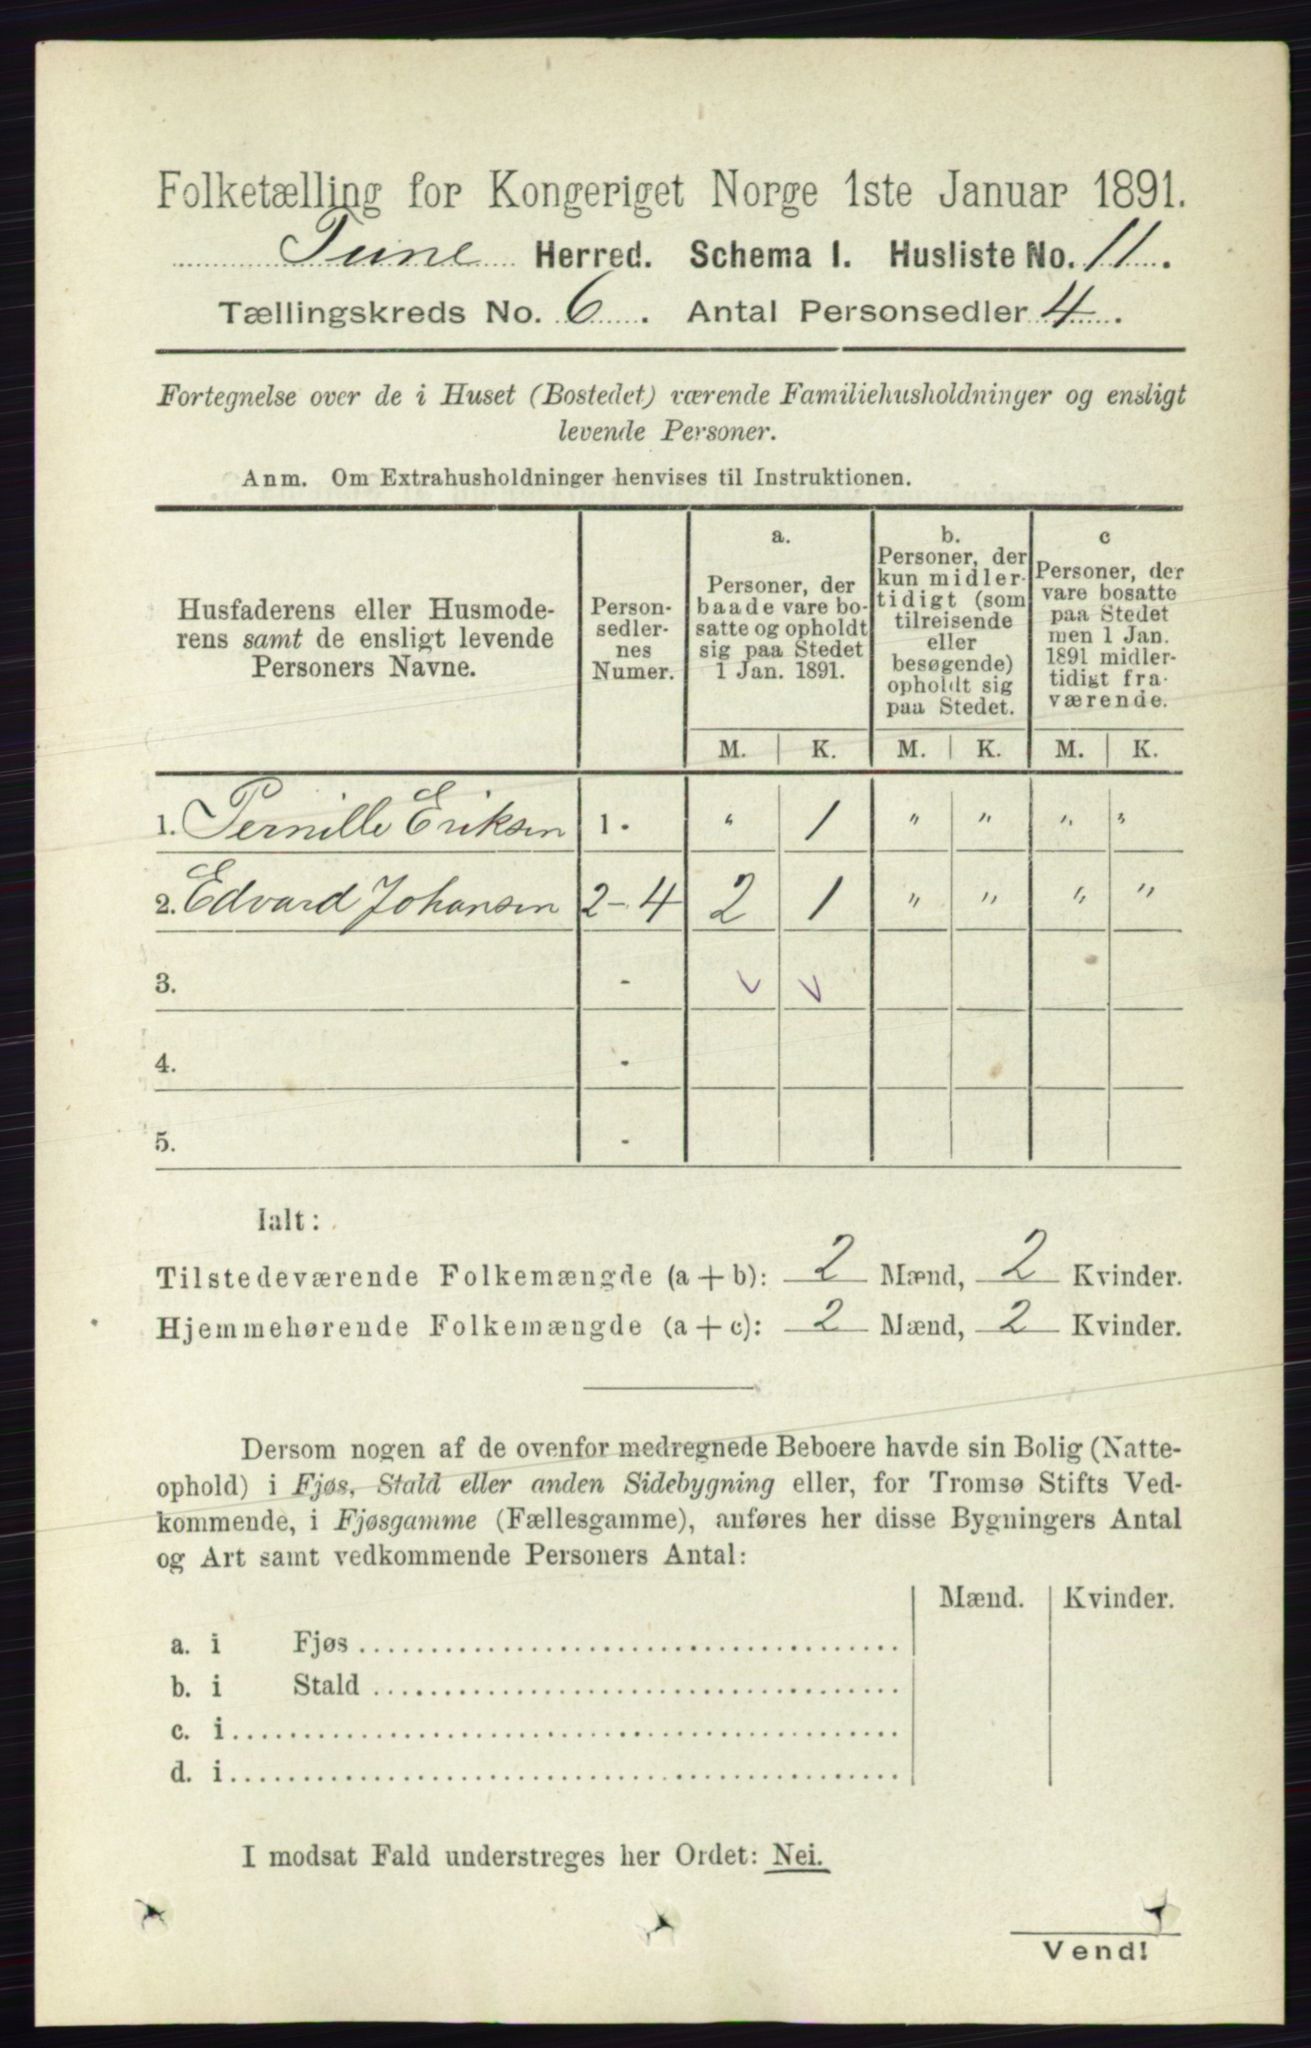 Folketælling for Kongeriget Norge 1ste Januar 1891.
Tune Herred. Schema I. Husliste No. 11.
Tællingskreds No. 6. Antal Personsedler 4.
Fortegnelse over de i Huset (Bostedet) værende Familiehusholdninger og ensligt
levende Personer.
Anm. Om Extrahusholdninger henvises til Instruktionen.
Husfaderens eller Husmode-
rens samt de ensligt levende
Personers Navne.
Person-
sedler-
nes
Numer.
a.
Personer, der
baade vare bo-
satte og opholdt
sig paa Stedet
1 Jan. 1891.
b.
Personer, der
kun midler-
tidigt (som
tilreisende
eller
besøgende)
opholdt sig
paa Stedet.
c
Personer, der
vare bosatte
paa Stedet
men 1 Jan.
1891 midler-
tidigt fra-
værende.
M. K. M. K. M. K.
1. Pernille Eriksen 1 - " 1 " " " "
2. Edvard Johansen 2-4 2 1 " " " "
3. -
4. -
5. -
Ialt:
Tilstedeværende Folkemængde (a + b): 2 Mænd, 2 Kvinder.
Hjemmehørende Folkemængde (a + c): 2 Mænd, 2 Kvinder.
Dersom nogen af de ovenfor medregnede Beboere havde sin Bolig (Natte-
ophold) i Fjøs, Stald eller anden Sidebygning eller, for Tromsø Stifts Ved-
kommende, i Fjøsgamme (Fællesgamme), anføres her disse Bygningers Antal
og Art samt vedkommende Personers Antal:
Mænd. Kvinder.
a. i Fjøs
b. i Stald
c. i
d. i
I modsat Fald understreges her Ordet: Nei.
Vend!